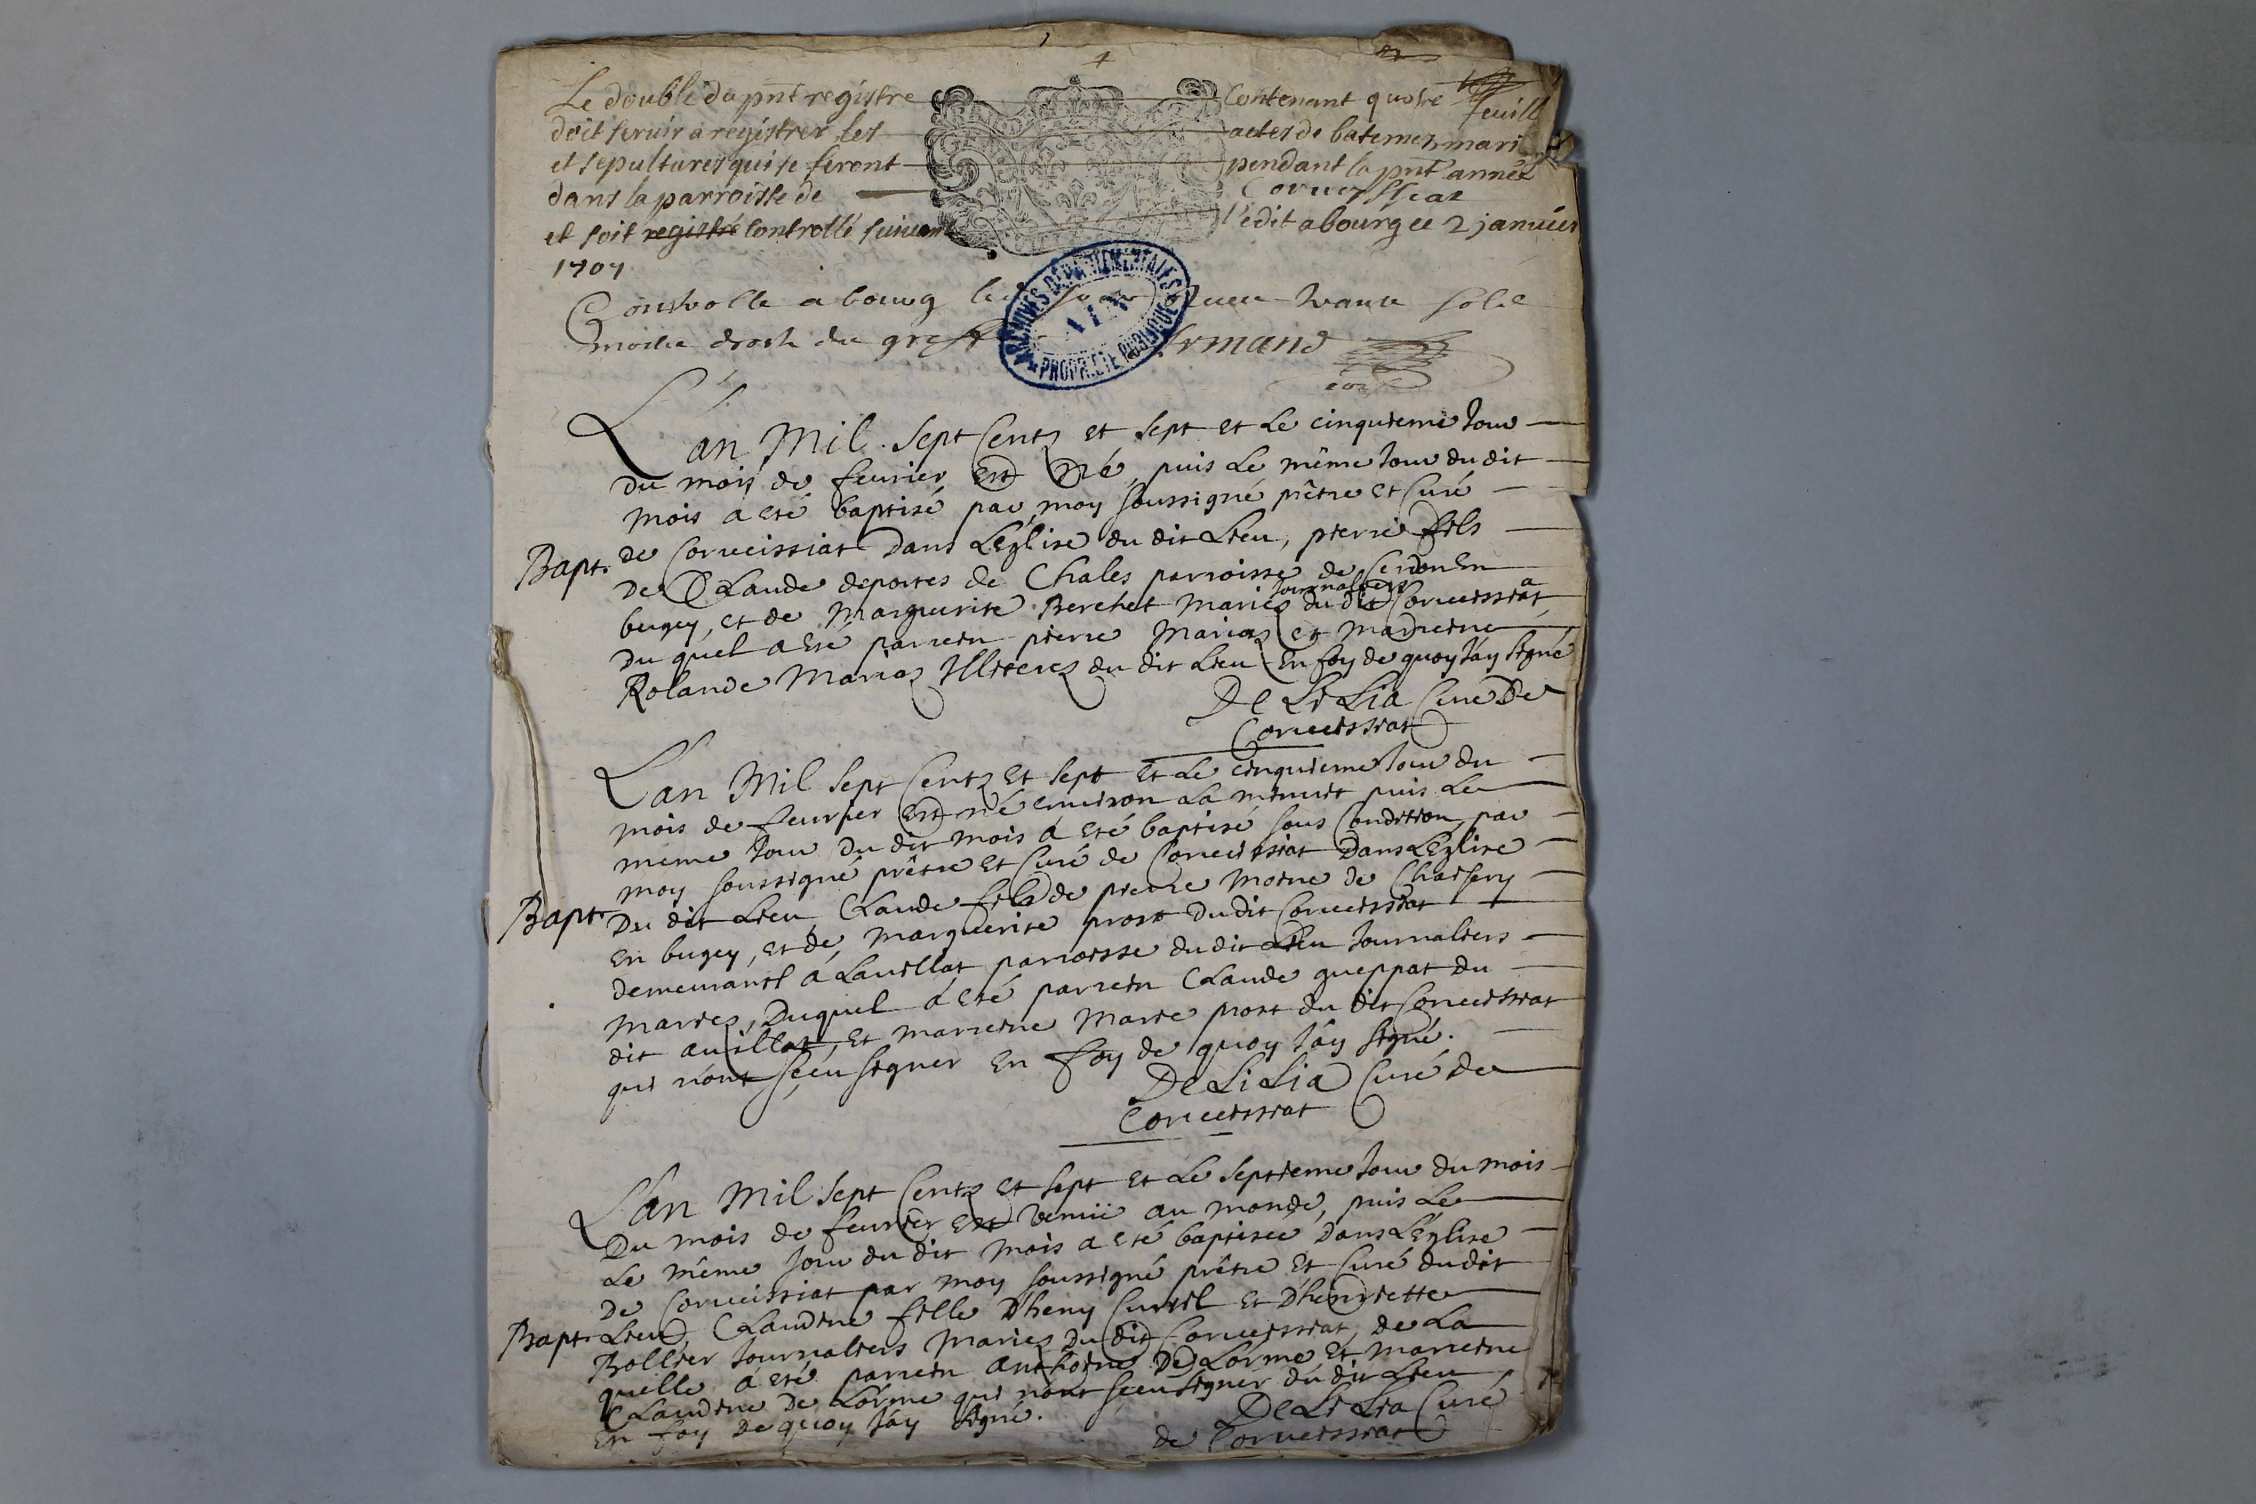 Le double du pnt registre contenant quatre feuill
doit servir a registrer les actes de batemes, mari
et sepultures qui se feront pendant la pnt année
dans la parroisse de Corveyssiat
et soit registré controllé suivant l'edit a bourg ce 2 janvier
1707
Controlle a bourg
moitie droit du greff Armand
ARCHIVES DÉPARTEMENTALES
AIN
PROPRIÉTÉ PUBLIQUE
L'an Mil sept Centz et sept et Le cinquieme Jour
du mois de fevrier Est Né, puis Le même Jour du dit
mois a eté baptisé par moy soussigné prêtre et Curé
Bapt. de Corveissiat Dans LEglise du dit Lieu, pierre fils
De CLaude deportes de Chales parroisse de Cerdon En
bugey, et de Marguerite Berchet Mariez Journaliers du dit Corveissiat a
Du quel a eté parrein pierre Mariaz et Marreine
Rolande Mariaz Illiterez du dit Lieu En foy de quoy Jáy signé
De LiLia Curé De
Corveissiat
L'an Mil sept Centz et sept et Le cinquieme Jour du
mois de fevrier Est né environ La minuit puis Le
meme Jour du dit mois á eté baptisé sous Condition par
moy soussigné prêtre et Curé de Corveissiat Dans LEglise
Bapt. Du dit Lieu CLaude fils de pierre Moine de Chaisery
En bugey, et de Marguerite prost du dit Corveissiat
demeurantz á Lavillat parroisse du dit Lieu Journaliers
mariez, Duquel á eté parrein CLaude gueppat du
dit avillat, Et marreine Marie prost du dit Corveissiat
qui n'ont sçeu signer En foy de quoy Jáy signé.
De LiLia Curé de
Corveissiat
L'an Mil sept Centz et sept et Le septieme Jour du mois
Du mois de fevrier Est venüe au monde, puis Le
Le même Jour du dit mois a eté baptisée Dans LEglise
De Corveissiat par moy soussigné prêtre Et Curé du dit
Bapt. Lieu, CLaudine fille D'heny Curtil et D'henriette
Bollier Journaliers Mariez Du dit Corveissiat, de La
quelle á eté parrein anthoine De Lórme et marreine
CLaudine De Lórme qui n'ont sçeu signer du dit Lieu
En foy De quoy Jáy signé. De LiLia Curé
de Corveissiat